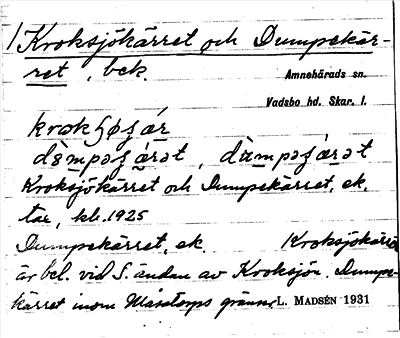 1) Kroksjökärret och Dumpekär-
ret, bek.
Amnehärads sn.
Vadsbo hd. Skar. l.
Kroksjökärret och Dumpekärret, ek.
kb. 1925
Dumpekärret, ek. Kroksjökärret
är bel. vid S. ändan av Kroksjön. Dumpe-
kärret inom Måstorps gränner L. MADSÉN 1931